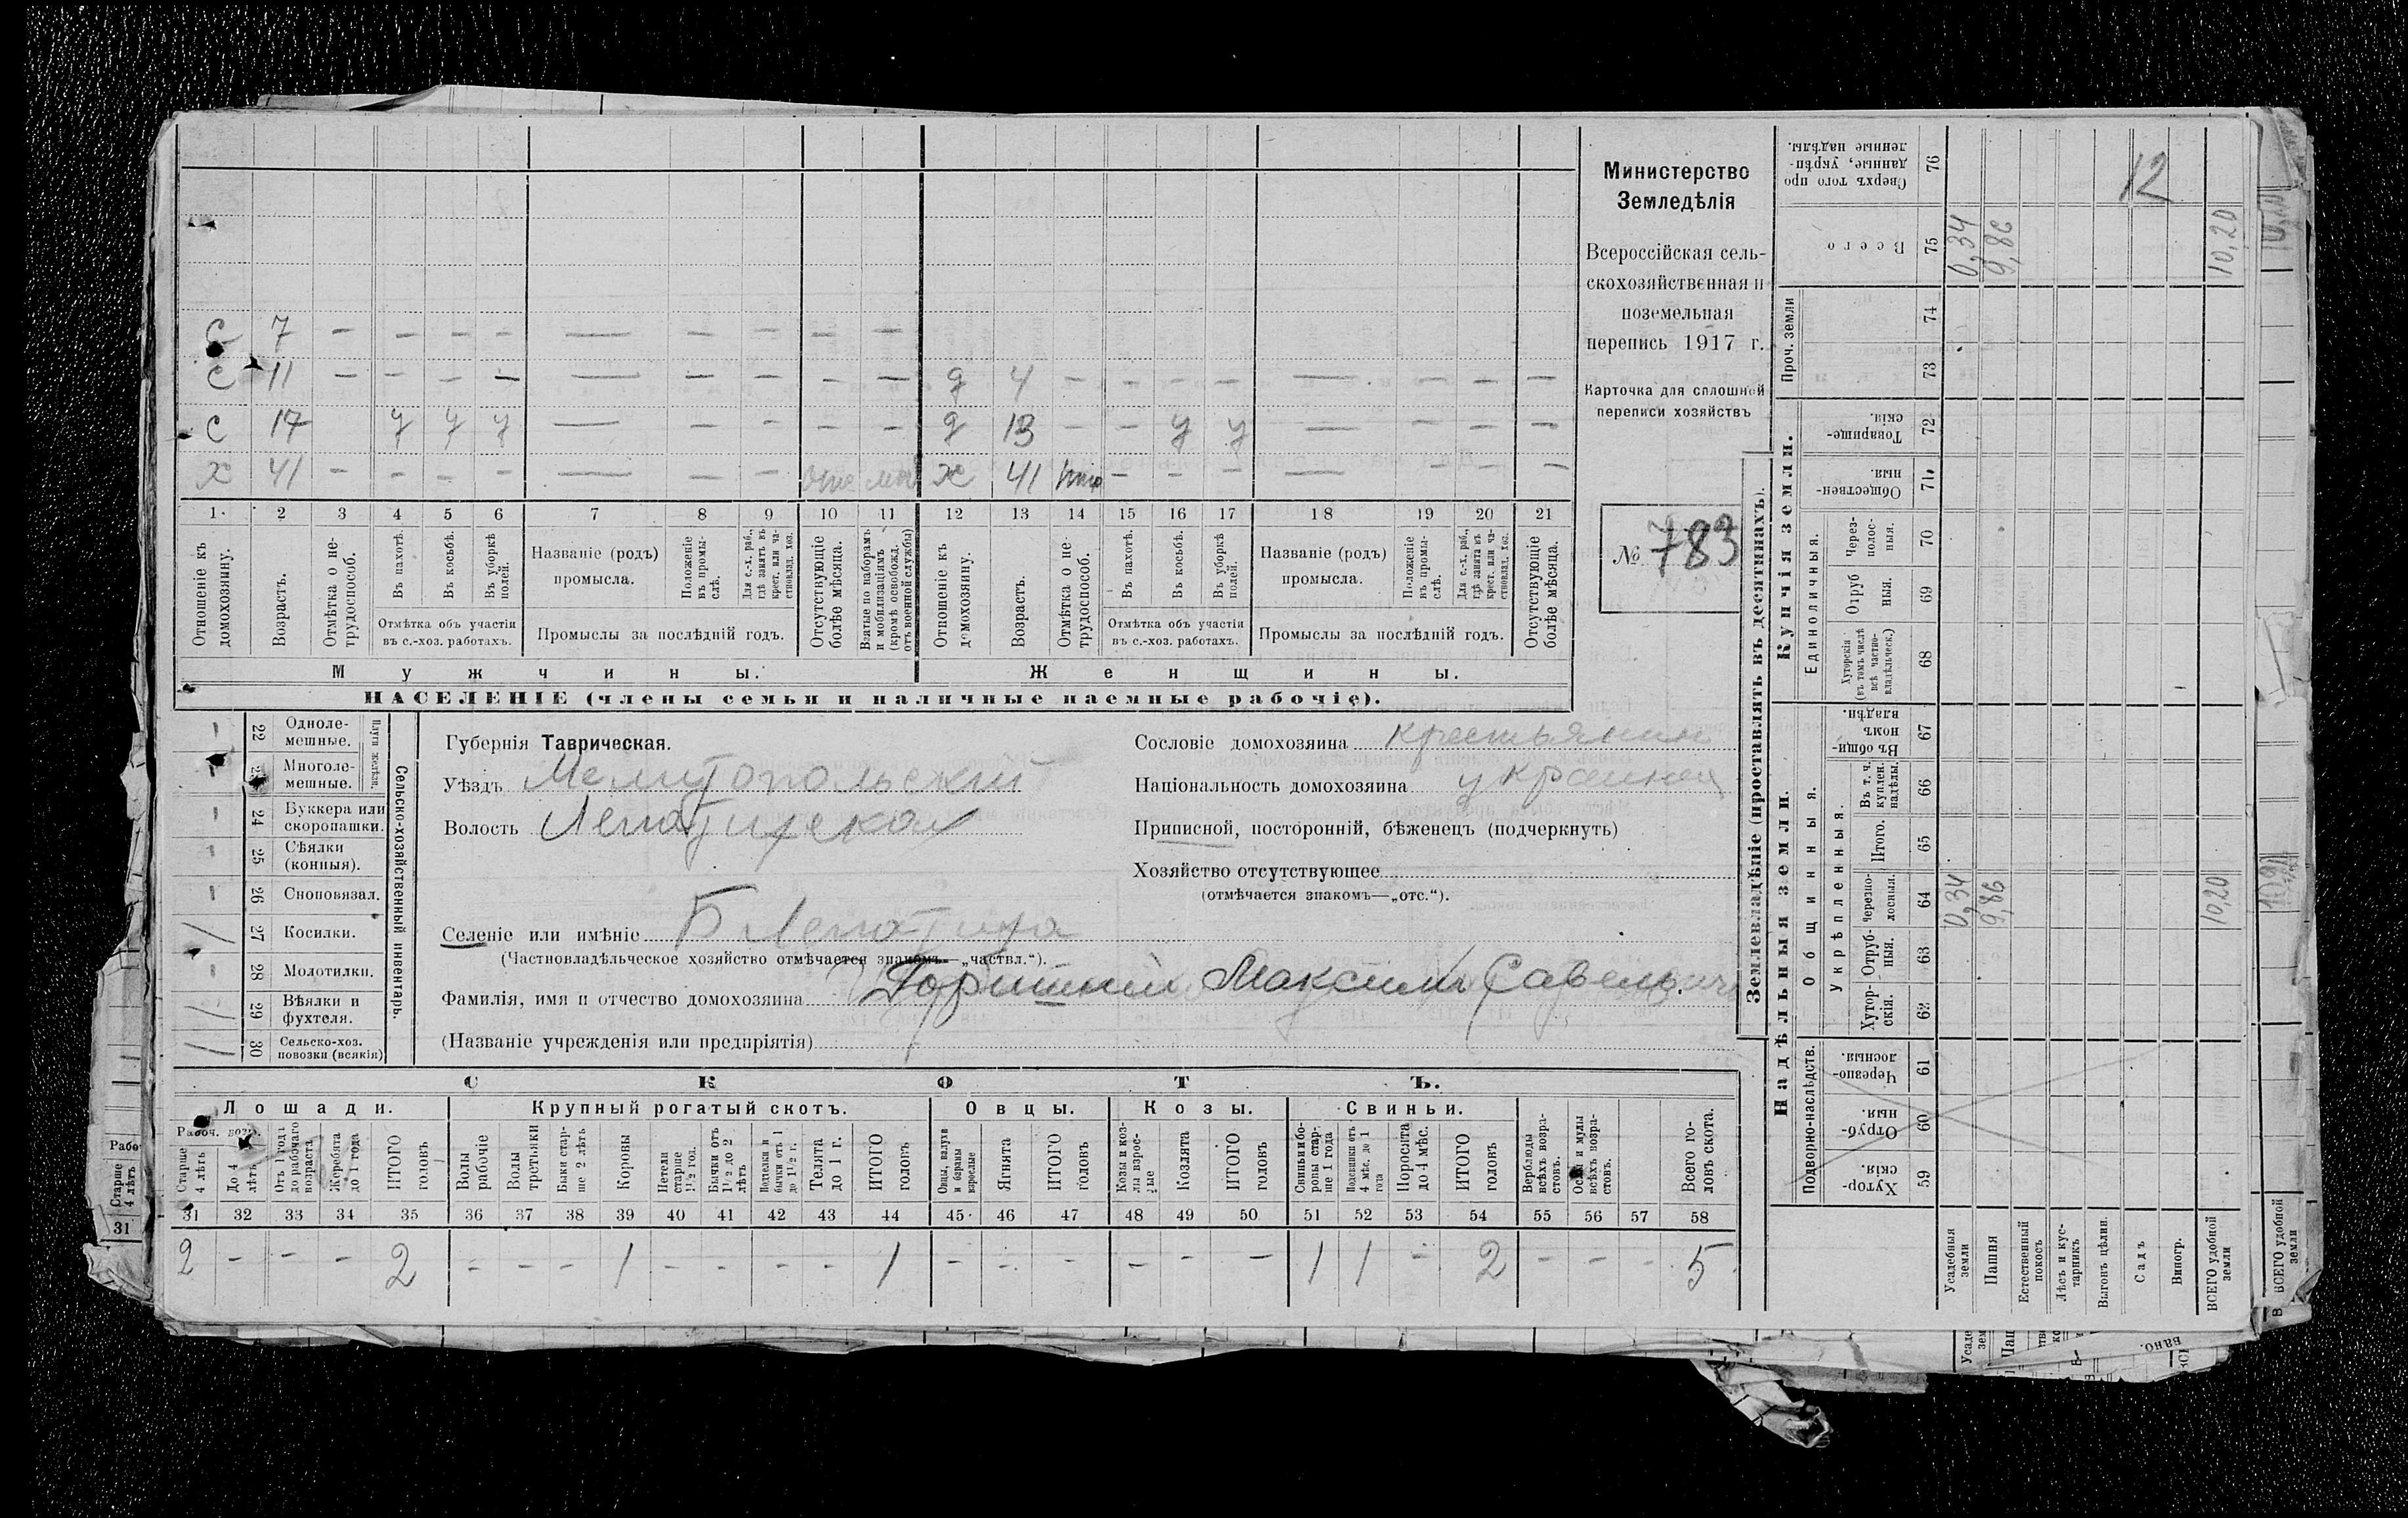 Министерство
Земледѣлія
Всероссійская сель-
скохозяйственная и
поземельная
перепись 1917 г.
Карточка для сплошной
переписи хозяйствъ
№ 783
с 7 — — — — — — — — — —
с 11 — — — — — — — — — д 4 — — — — — — — —
с 17 у у у — — — — — д 13 — — у у — — — —
х 41 — — — — — — — х 41 — — — — — — —
1 2 3 4 5 6 7 8 9 10 11 12 13 14 15 16 17 18 19 20 21
Отношеніе къ домохозяину.
Возрастъ.
Отмѣтка о не-трудоспособ.
Въ пахотѣ.
Въ косьбѣ.
Въ уборкѣ полей.
Отмѣтка объ участіи
въ с.-хоз. работахъ.
Названіе (родъ)
промысла.
Положеніе въ промы-слѣ.
Для с.-х. раб., гдѣ занятъ въ крест. или ча-стновлад. хоз.
Промыслы за послѣдній годъ.
Отсутствующіе болѣе мѣсяца.
Взятые по наборамъ и мобилизаціямъ (кромѣ освобожд. отъ военной службы)
Отношеніе къ домохозяину.
Возрастъ.
Отмѣтка о не-трудоспособ.
Въ пахотѣ.
Въ косьбѣ.
Въ уборкѣ полей.
Отмѣтка объ участіи
въ с.-хоз. работахъ.
Названіе (родъ)
промысла.
Положеніе въ промы-слѣ.
Для с.-х. раб., гдѣ занята въ крест. или ча-стновлад. хоз.
Промыслы за послѣдній годъ.
Отсутствующіе болѣе мѣсяца.
Мужчины. Женщины.
НАСЕЛЕНІЕ (члены семьи и наличные наемные рабочіе).
Сельско-хозяйственный инвентарь.
Плуги желѣзн.
— 22 Одноле-мешные.
— 23 Многоле-мешные.
— 24 Буккера или скоропашки.
— 25 Сѣялки (конныя).
— 26 Сноповязал.
/ 27 Косилки.
— 28 Молотилки.
/ 29 Вѣялки и фухтеля.
30 Сельско-хоз. повозки (всякія)
Губернія Таврическая.
Уѣздъ Мелитопольскій
Волость Лепатихская
Селеніе или имѣніе Б Лепатиха
(Частновладѣльческое хозяйство отмѣчается знакомъ—„частвл.“).
Фамилія, имя и отчество домохозяина Максим Савельичъ
(Названіе учрежденія или предпріятія)
Сословіе домохозяина крестьянин
Національность домохозяина украинец
Приписной, посторонній, бѣженецъ (подчеркнуть)
Хозяйство отсутствующее
(отмѣчается знакомъ—„отс.“).
СКОТЪ.
Лошади. Крупный рогатый скотъ. Овцы. Козы. Свиньи.
Рабоч. возр.
Старше 4 лѣтъ
До 4 лѣтъ
Отъ 1 года до рабочаго возраста
Жеребята до 1 года
ИТОГО головъ
Волы рабочіе
Волы третьяки
Быки стар-ше 2 лѣтъ
Коровы
Нетели старше 1½ год.
Бычки отъ 1½ до 2 лѣтъ
Подтелки и бычки отъ 1 до 1½ г.
Телята до 1 г.
ИТОГО головъ
Овцы, валухи и бараны взрослые
Ягнята
ИТОГО головъ
Козы и коз-лы взрос-лые
Козлята
ИТОГО головъ
Свиньи и бо-ровы стар-ше 1 года
Подсвинки отъ 4 мѣс. до 1 года
Поросята до 4 мѣс.
ИТОГО головъ
Верблюды всѣхъ возра-стовъ.
Ослы и мулы всѣхъ возра-стовъ.
Всего го-ловъ скота.
31 32 33 34 35 36 37 38 39 40 41 42 43 44 45 46 47 48 49 50 51 52 53 54 55 56 57 58
2 — — — 2 — — — 1 — — — — 1 — — — — — — 1 1 — 2 — — — 5
Землевладѣніе (проставлять въ десятинахъ).
Надѣльныя земли.
Подворно-наслѣдств.
Хутор-скія. 59
Отруб-ныя. 60
Черезпо-лосныя. 61
Общинныя.
Укрѣпленныя.
Хутор-скія. 62
Отруб-ныя. 63
Черезпо-лосныя. 64
Итого. 65
Въ т. ч. куплен. надѣлы. 66
Въ общи-номъ владѣн. 67
Купчія земли.
Единоличныя.
Хуторскія (въ томъ числѣ всѣ частно-владѣльческ.) 68
Отруб ныя. 69
Через-полос-ныя. 70
Обществен-ныя. 71
Товарище-скія. 72
Проч. земли
73
74
Всего 75
Сверхъ того про данные, укрѣп-ленные надѣлы. 76
Усадебныя земли 0,34 0,34
Пашня 9,86 9,86
Естественный покосъ
Лѣсъ и кус-тарникъ
Выгонъ цѣлин.
Садъ
Виногр.
ВСЕГО удобной земли 10,20 10,20
12
Рабо
Старше 4 лѣтъ
31
ВСЕГО удобной земли